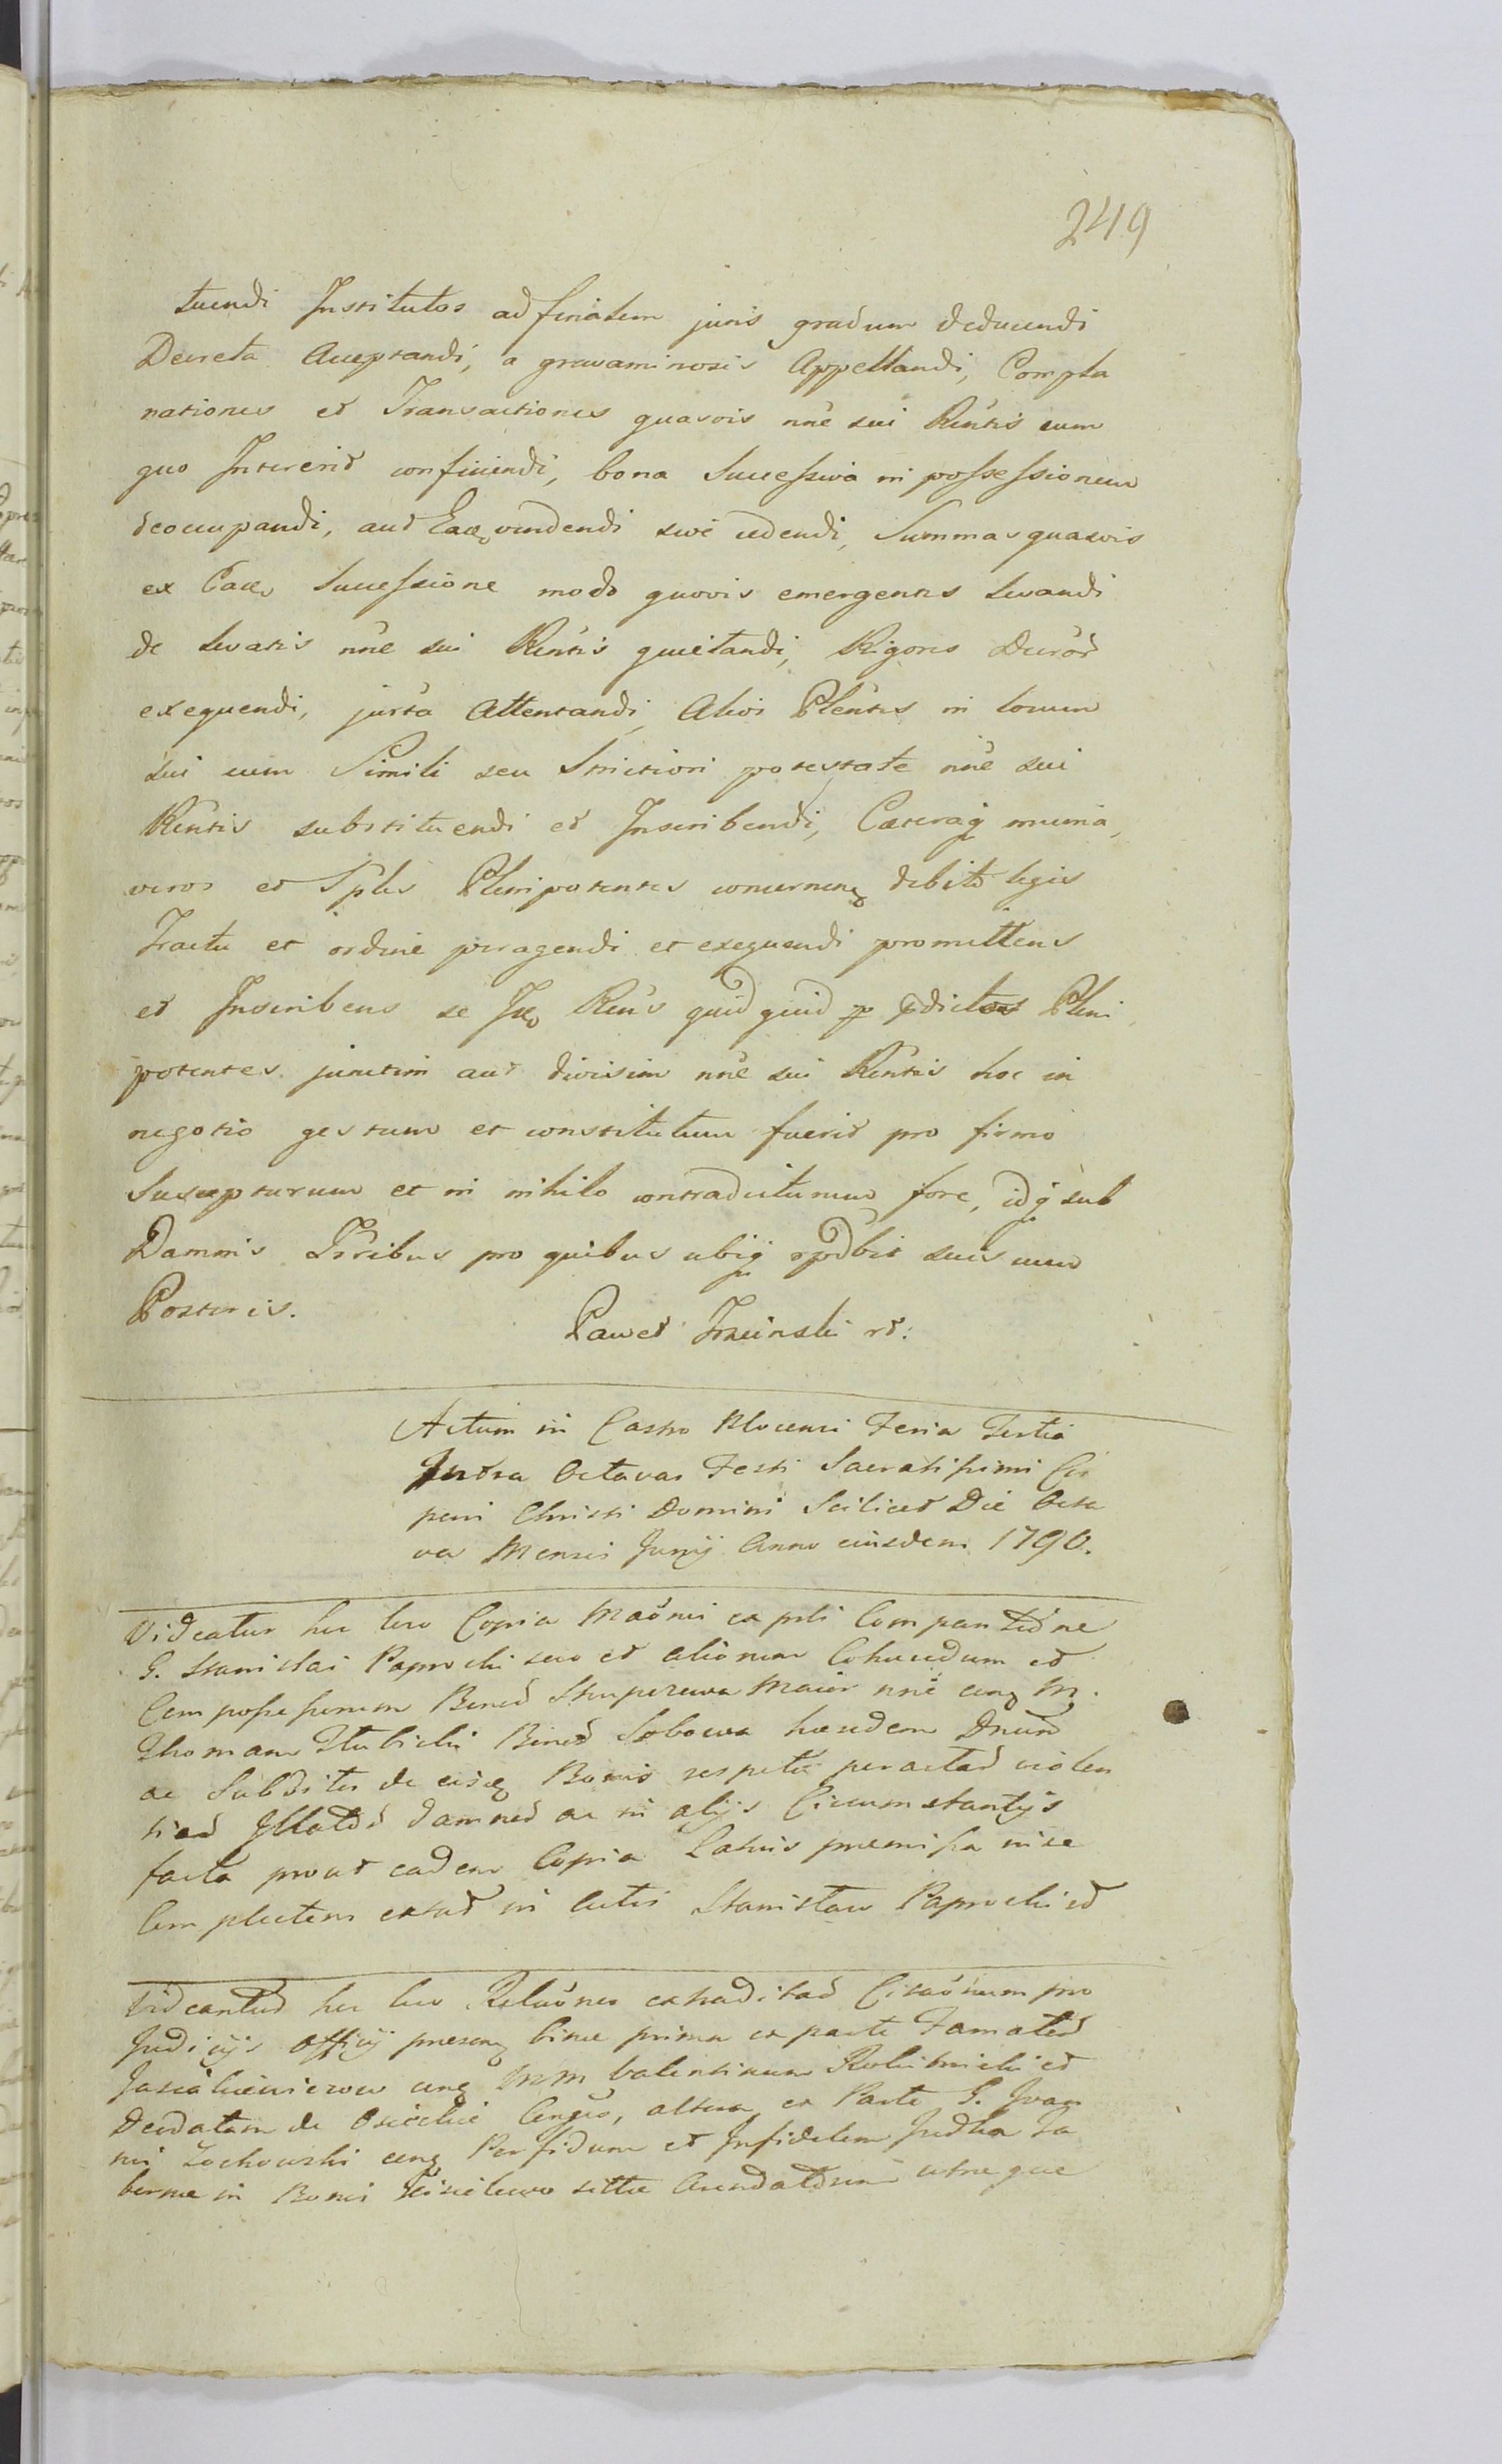 249
tuendi Institutos ad finalem juris gradum deducendi
Decreta Acceptandi, a gravaminosis Appellandi, Compla
nationes et Transactiones quasvis nne sui Rentis cum
quo Intererit conficiendi, bona Successiva in possessionem
deoccupandi, aut Eaq vendendi sive cedendi, Summas quasvis
ex Eaq Successione modo quovis emergentes Levandi
de Levatis nne sui Rentis quietandi, Rigores Decror
exequendi, jurta Attentandi, Alios Plentes in locum
sui cum Simili seu Strictiori potestate nne sui
Rentis substituendi et Inscribendi, Caeteraq munia
veros et Sples Plenipotentes concernen debito legis
Tractu et ordine peragendi et exequendi promittens
et Inscribens se Rens quid quid p pdictos Pleni
potentes junctim aut divisim nne sui Rentis hoc in
negotio gestum et constitutum fuerit pro firmo
Suscepturum et in nihilo contradicturum fore, idq sub
Damnis Trribus pro quibus ubiq rpdbit suis cum
Posteris.
Paweł Trzcinski
Actum in Castro Plocensi Feria Tertia
Intra Octavas Festi Sacratissimi Cor
poris Christi Domini Scilicet Die Octa
va Mensis Junij Anno eiusdem 1790.
Videatur hic loco Copia ex pti
G. Stanislai Paprocki suo et aliorum Cohaeredum et
Compossessorum Bonor Maior nne M.
Thomam Bonor haeredem
ac Subditos de eisq Bonis respectu peractar violen
tiar Illator damnor ac in alijs Circumstantijs
facta prout eadem Copia Latius praemissa in se
Complectens extat in Actis Stanislaw Paprocki
Videantur hic loco Relaones extraditar Citaonum pro
Judicijs Officij praesen binae prima ex parte Famator
MM Valentinum et
de altera ex Parte G. Joan
nis Zochowski Perfidum et Infidelem Ta
bernae in Bonis sittae utraque